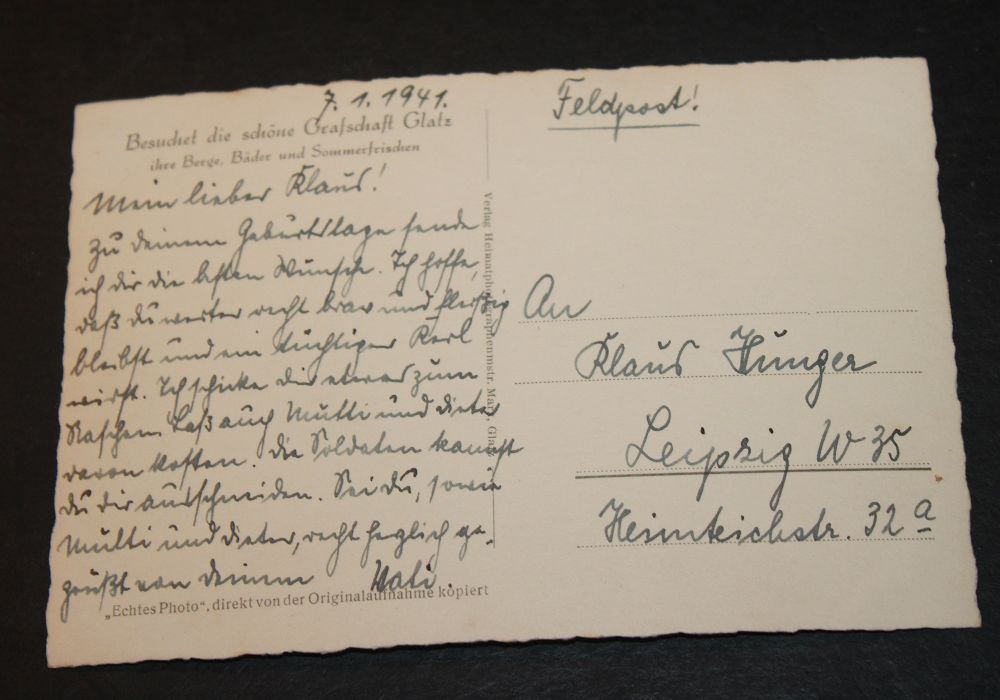 7. 1. 1941.
Besuchet die schöne Grafschaft Glatz
ihre Berge, Bäder und Sommerfrischen
Mein lieber Klaus!
Zu deinem Geburtstage sende
ich dir die besten Wünsche. Ich hoffe,
daß du weiter recht brav und fleißig
bleibst und ein tüchtiger Kerl
wirst. Ich schicke dir etwas zum
Naschen. Laß auch Mutti und Dieter
davon kosten. Die Soldaten kannst
du dir ausschneiden. Sei du, sowie
Mutti und Dieter, recht herzlich ge-
grüßt von deinem Vati.
„Echtes Photo“, direkt von der Originalaufnahme kopiert
Verlag Heimatphotographenmstr. Glatz
Feldpost!
An
Klaus Hunger
Leipzig W 35
Heimteichstr. 32 a